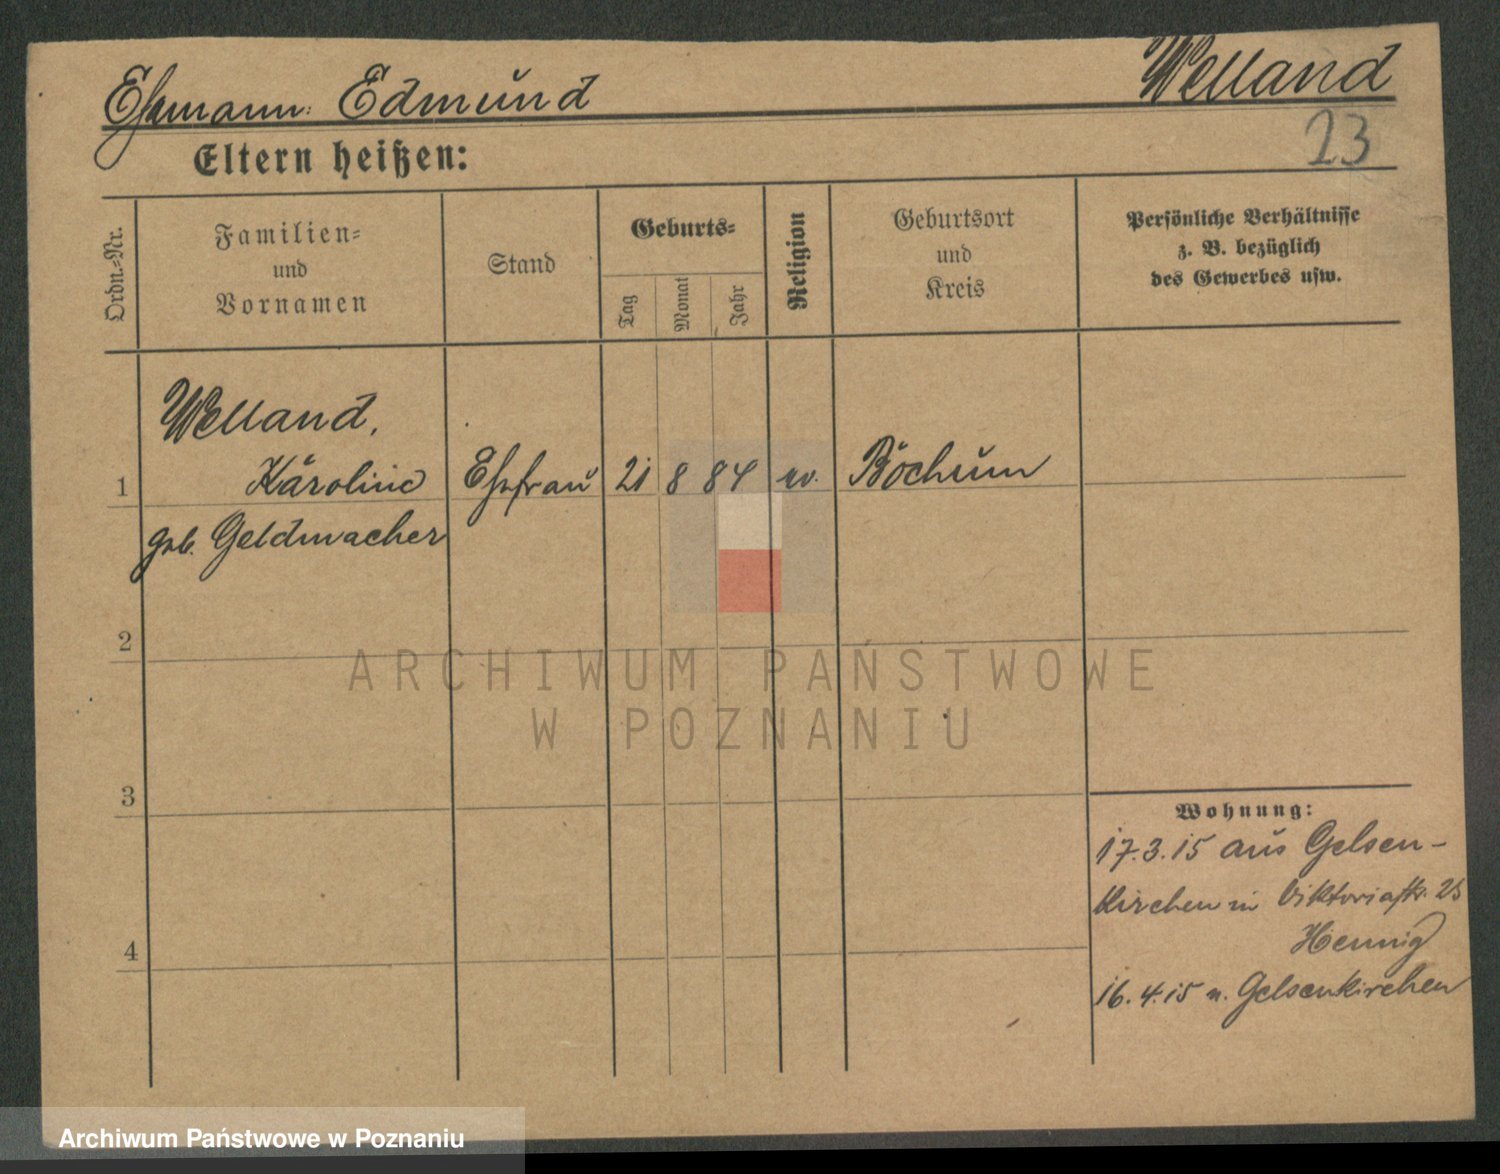 Ehemann: Edmund Welland
23
Eltern heißen:
Ordn.-Nr.
Familien-
und
Vornamen
Stand
Geburts-
Tag
Monat
Jahr
Religion
Geburtsort
und
Kreis
Persönliche Verhältnisse
z. B. bezüglich
des Gewerbes usw.
Welland,
1 Karoline Ehefrau 21 8 84 ev. Bochum
geb. Geldmacher
2
3
4
Wohnung:
17.3.15 aus Gelsen-
kirchen in Viktoriastr. 25
Hennig
16.4.15 n. Gelsenkirchen
ARCHIWUM PAŃSTWOWE
W POZNANIU
Archiwum Państwowe w Poznaniu